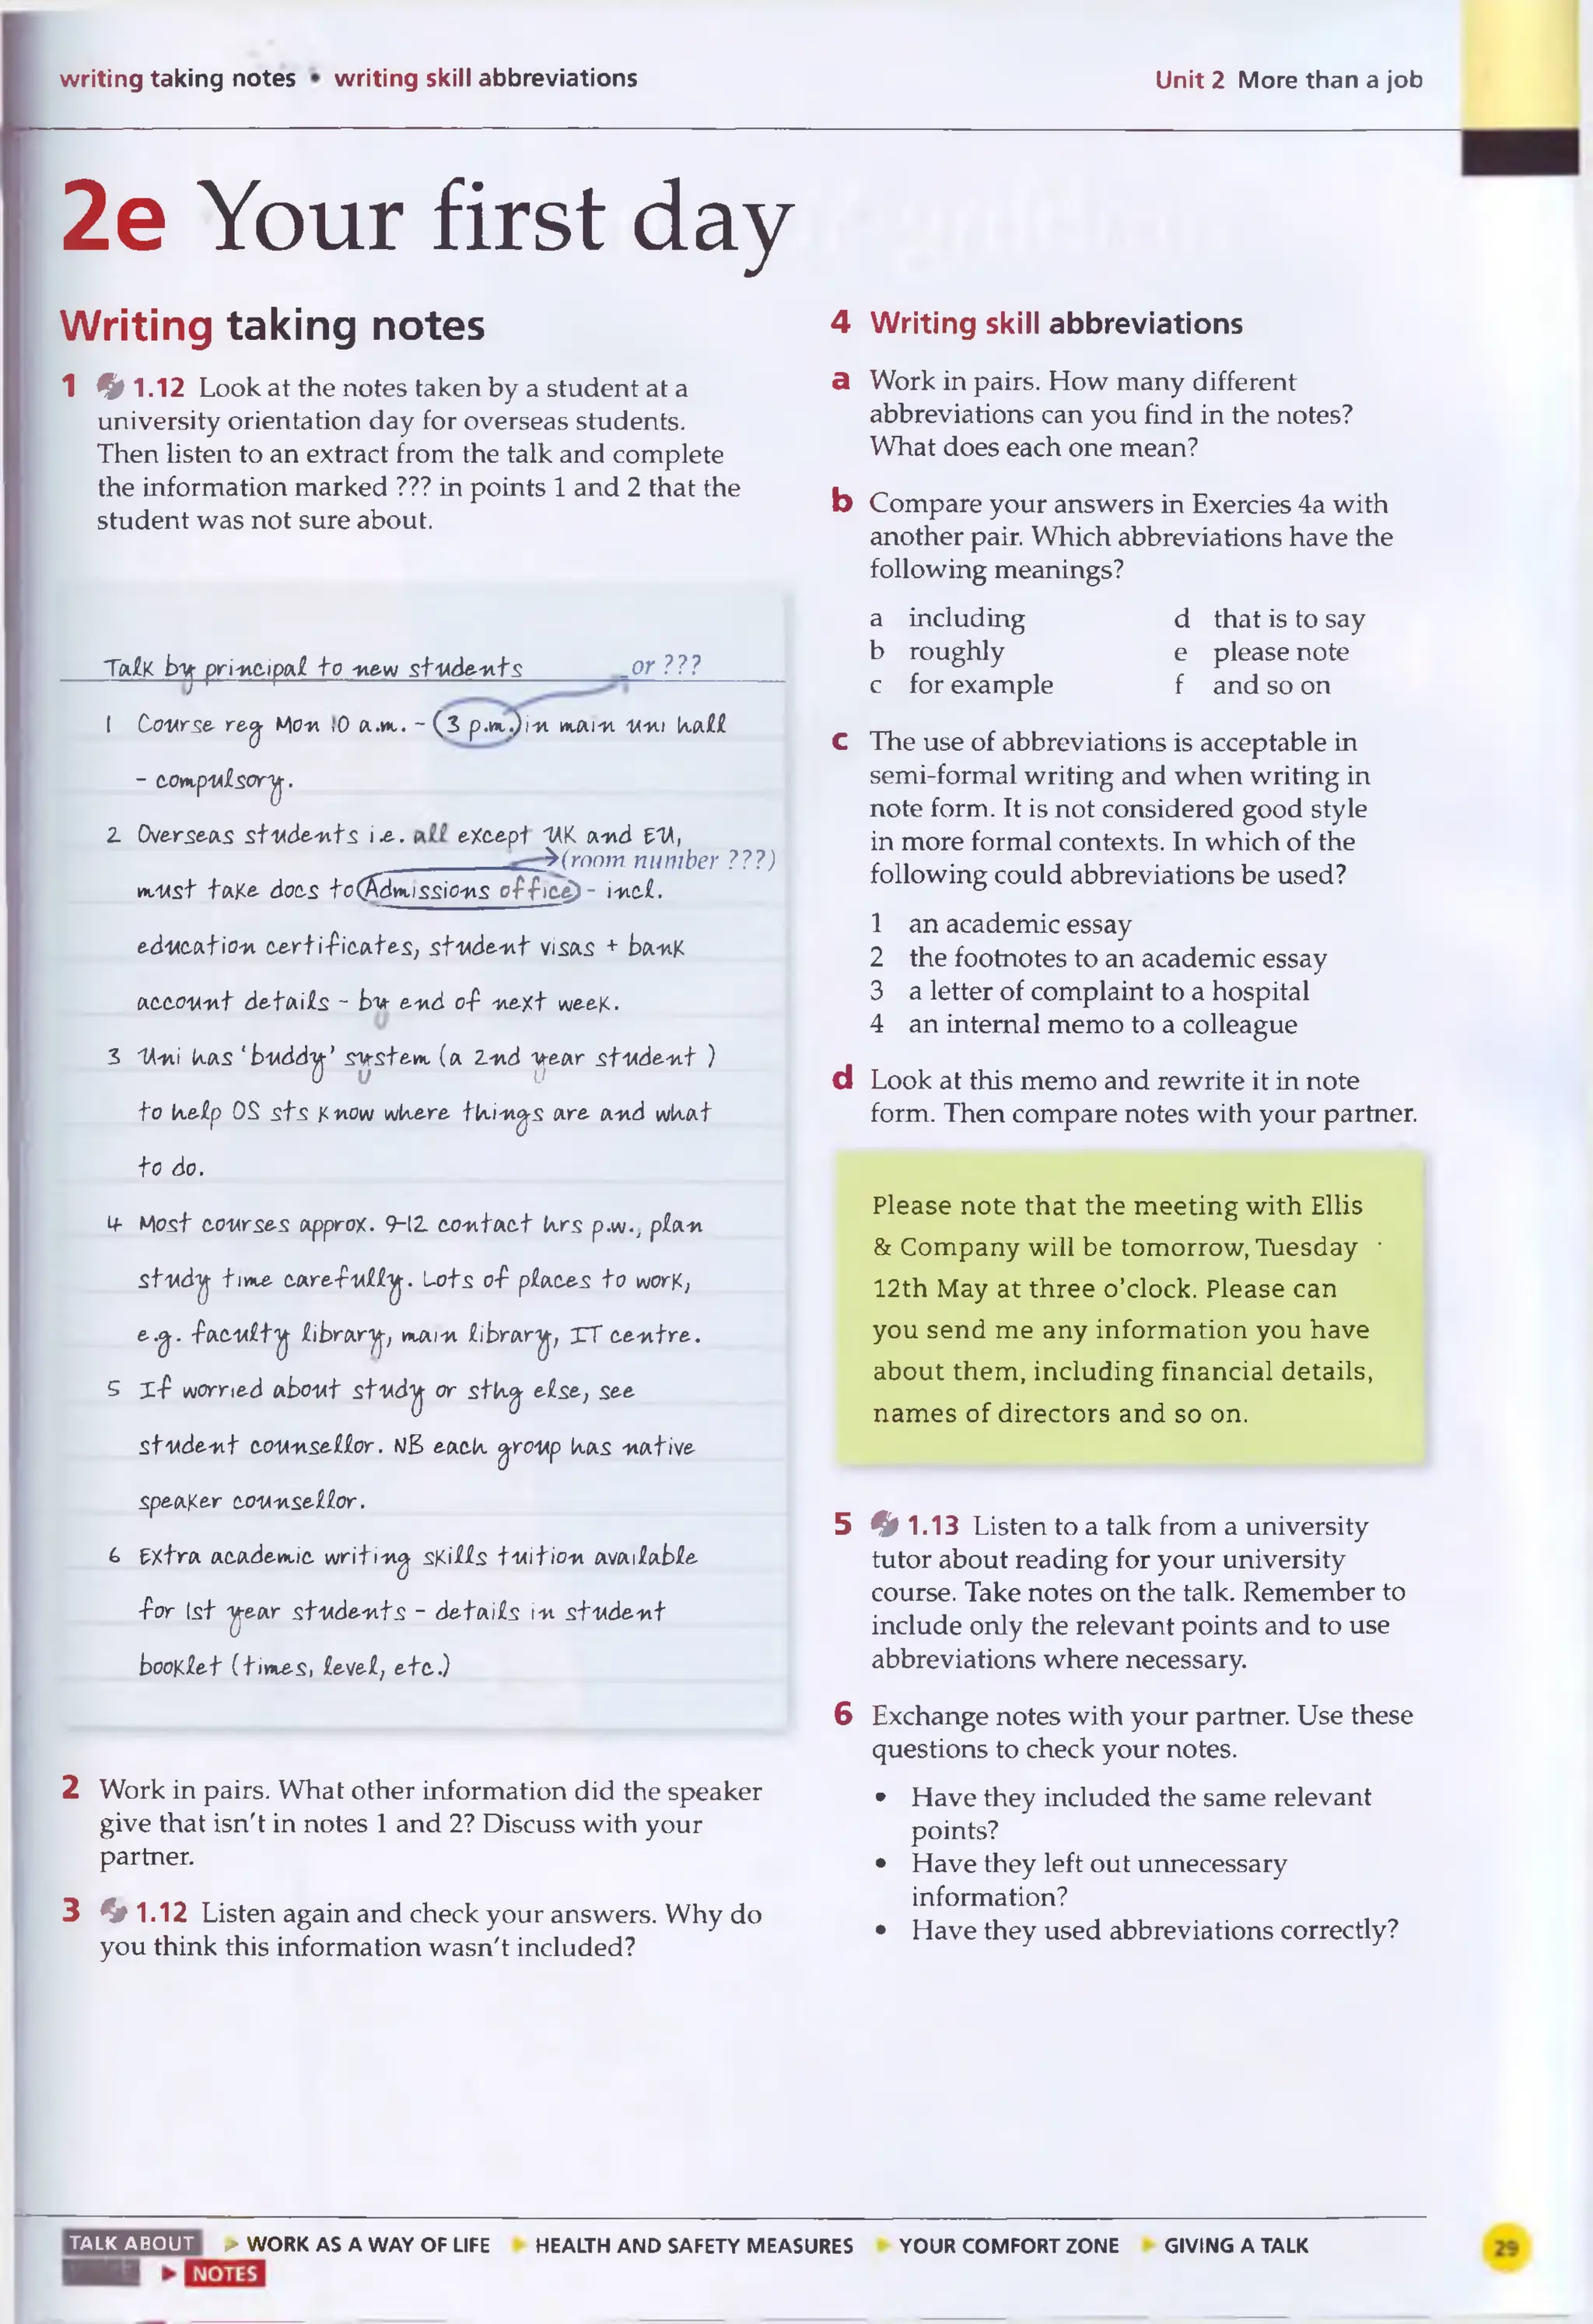 writing taking notes • writing skill abbreviations
Unit 2 More than a job
2e Your first day
Writing taking notes
1 1.12 Look at the notes taken by a student at a
university orientation day for overseas students.
Then listen to an extract from the talk and complete
the information marked ??? in points 1 and 2 that the
student was not sure about.
Talk by principal to new students or ???
1 Course reg Mon 10 a.m. - (3 p.m.) in main uni hall
- compulsory.
2 Overseas students i.e. all except UK and EU,
(room number ???)
must take docs to Admissions office - incl.
education certificates, student visas + bank
account details - by end of next week.
3 Uni has 'buddy' system (a 2nd year student )
to help OS sts know where things are and what
to do.
4 Most courses approx. 9-12 contact hrs p.w., plan
study time carefully. Lots of places to work,
e.g. faculty library, main library, IT centre.
5 If worried about study or sthg else, see
student counsellor. NB each group has native
speaker counsellor.
6 Extra academic writing skills tuition available
for 1st year students - details in student
booklet (times, level, etc.)
2 Work in pairs. What other information did the speaker
give that isn't in notes 1 and 2? Discuss with your
partner.
3 1.12 Listen again and check your answers. Why do
you think this information wasn't included?
4 Writing skill abbreviations
a Work in pairs. How many different
abbreviations can you find in the notes?
What does each one mean?
b Compare your answers in Exercies 4a with
another pair. Which abbreviations have the
following meanings?
a including d that is to say
b roughly e please note
c for example f and so on
c The use of abbreviations is acceptable in
semi-formal writing and when writing in
note form. It is not considered good style
in more formal contexts. In which of the
following could abbreviations be used?
1 an academic essay
2 the footnotes to an academic essay
3 a letter of complaint to a hospital
4 an internal memo to a colleague
d Look at this memo and rewrite it in note
form. Then compare notes with your partner.
Please note that the meeting with Ellis
& Company will be tomorrow, Tuesday
12th May at three o'clock. Please can
you send me any information you have
about them, including financial details,
names of directors and so on.
5 1.13 Listen to a talk from a university
tutor about reading for your university
course. Take notes on the talk. Remember to
include only the relevant points and to use
abbreviations where necessary.
6 Exchange notes with your partner. Use these
questions to check your notes.
• Have they included the same relevant
points?
• Have they left out unnecessary
information?
• Have they used abbreviations correctly?
TALK ABOUT ▶ WORK AS A WAY OF LIFE ▶ HEALTH AND SAFETY MEASURES ▶ YOUR COMFORT ZONE ▶ GIVING A TALK
▶ NOTES
29